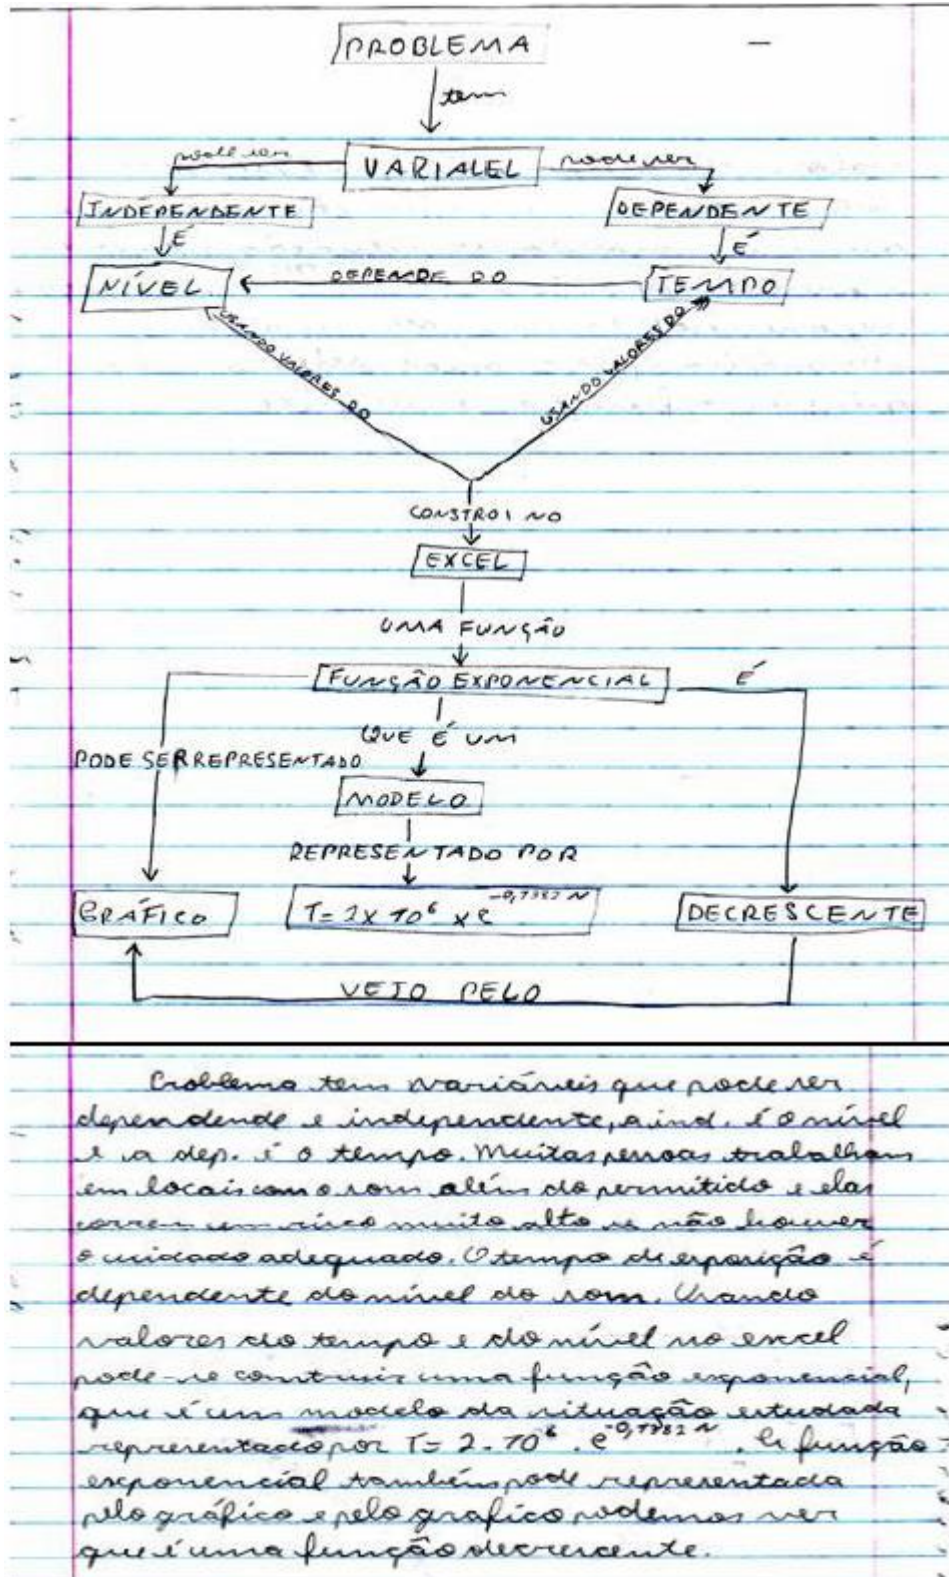 PROBLEMA
tem
pode ser VARIALEL pode ser
INDEPENDENTE DEPENDENTE
É É
NÍVEL DEPENDE DO TEMPO
USANDO VALORES DO USANDO VALORES DO
CONSTROI NO
EXCEL
UMA FUNÇÃO
FUNÇÃO EXPONENCIAL É
QUE É UM
PODE SER REPRESENTADO
MODELO
REPRESENTADO POR
GRÁFICO T = 2 x 10⁶ x e DECRESCENTE
VEJO PELO
Problema tem variáveis que pode ser
dependende e independente, a ind. é o nível
e a dep. é o tempo. Muitas pessoas trabalham
em locais com o som além do permitido e elas
correm um risco muito alto se não houver
o cuidado adequado. O tempo de exposição é
dependente do nível do som. Usando
valores do tempo e do nível no excel
pode-se construir uma função exponencial,
que é um modelo da situação estudada
representado por T = 2 . 10⁶ . e . A função
exponencial também pode representada
pelo gráfico e pelo grafico podemos ver
que é uma função decrescente.